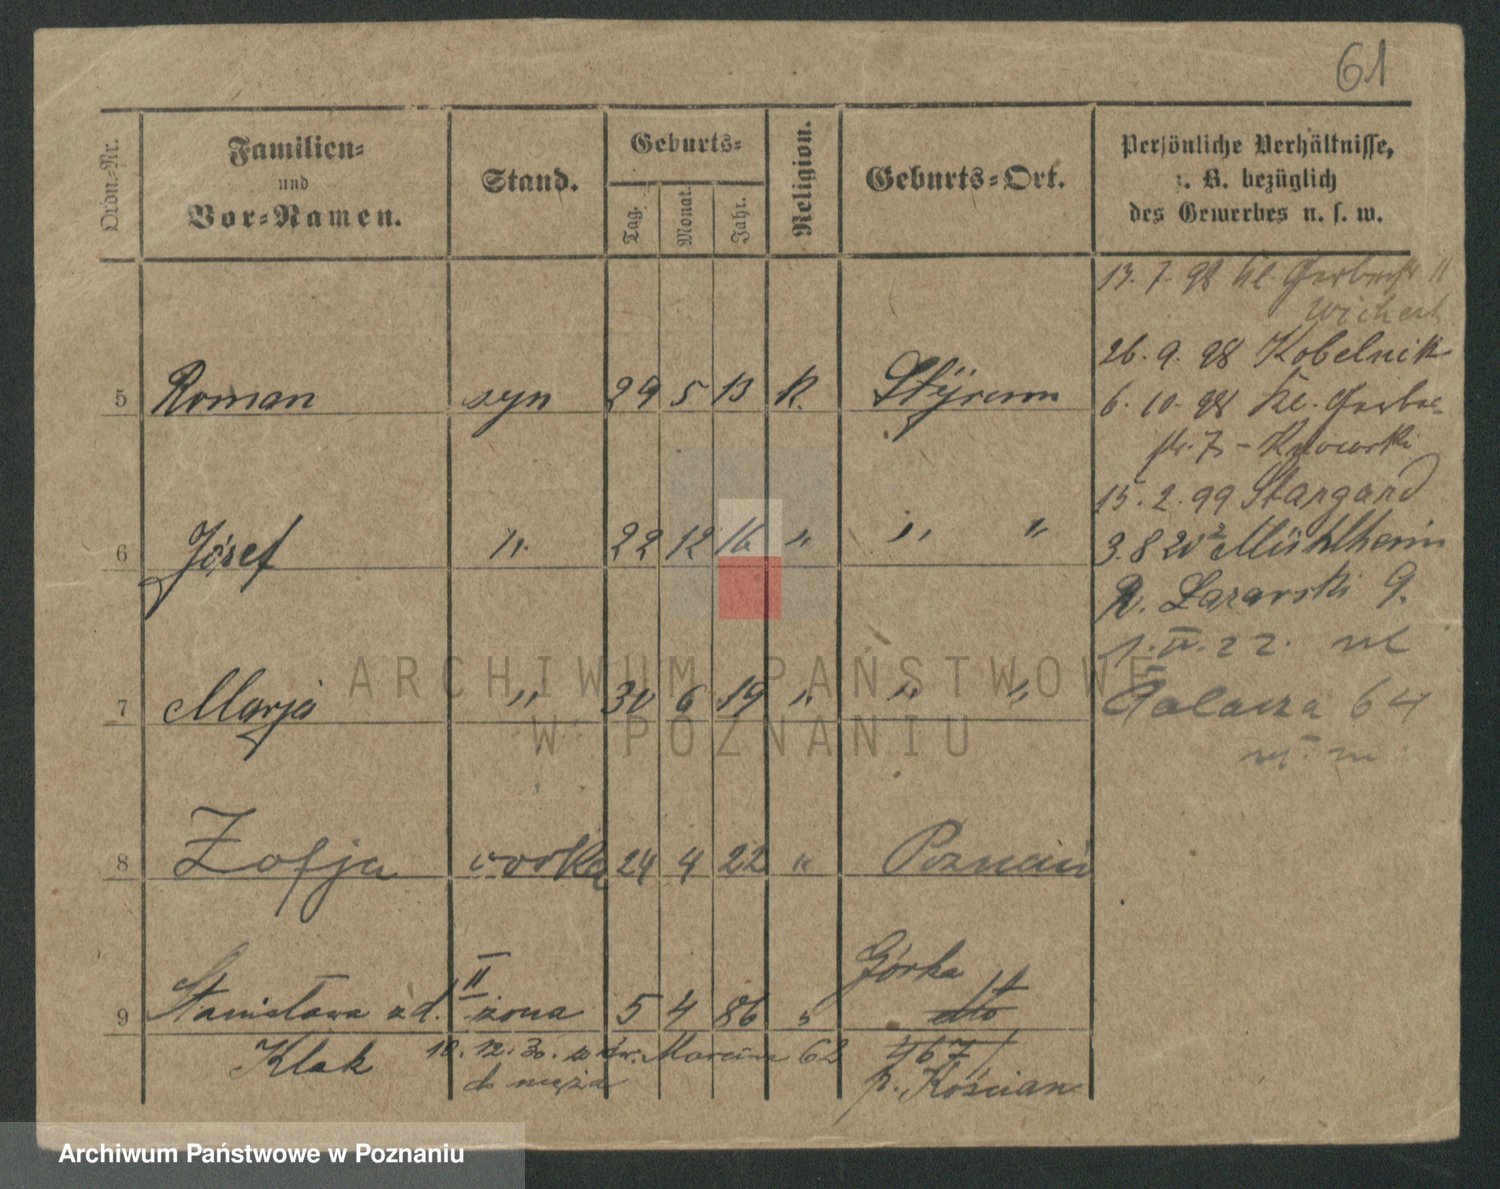 61
Ordn.-Nr.
Familien-
und
Vor-Namen.
Stand.
Geburts-
Tag.
Monat.
Jahr.
Religion.
Geburts-Ort.
Persönliche Verhältnisse,
z. B. bezüglich
des Gewerbes u. s. w.
13. 7. 98 kl. Gerberstr. 11
Wichert
26. 9. 98 Kobelnik
5 Roman syn 29 5 13 K. Styrum
6. 10. 98 kl. Gerber-
str. 7
15. 2. 99 Stargard
6 Józef " 22 12 16 " " "
3. 8 20 Mühlheim
R. Lazarski 9.
1. IV. 22. ul
7 Marja " 30 6 19 " " "
64
ARCHIWUM PAŃSTWOWE
W POZNANIU
8 Zofja córka 24 4 22 " Poznań
Górka
9 Stanisława z d. II żona 5 4 86 " dto
Klak 10. 12. 30. św. Marcina 62 467
do męża p. Kościan
Archiwum Państwowe w Poznaniu